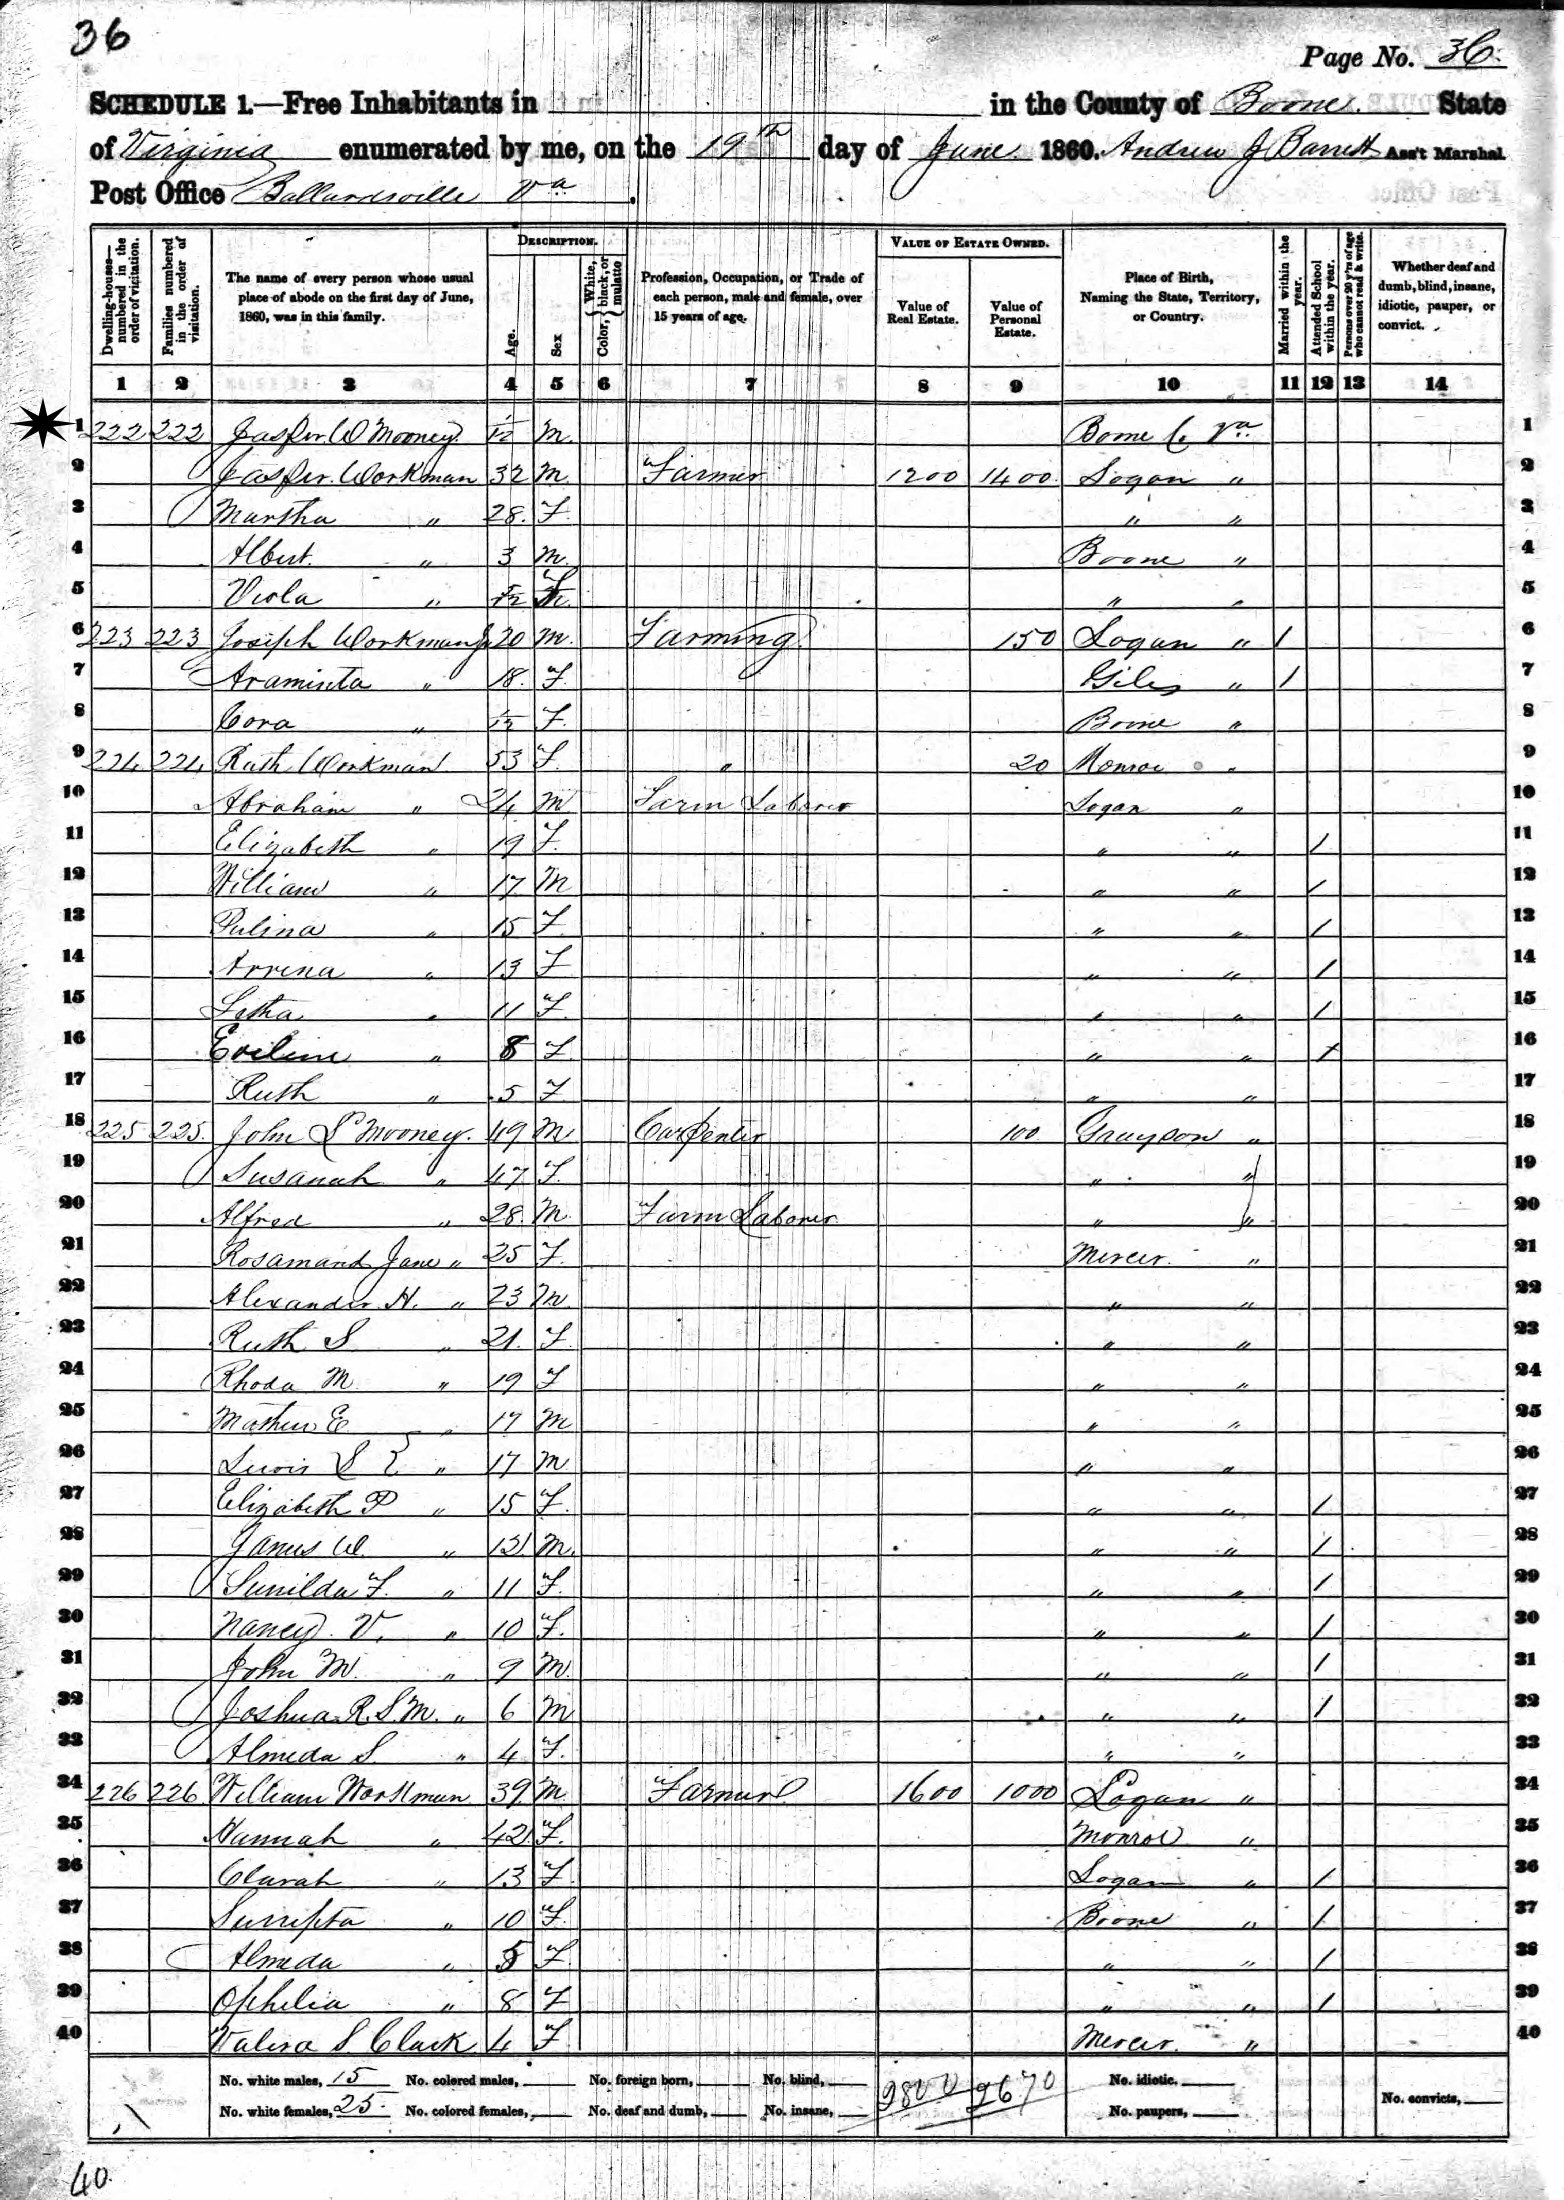 36
Page No. 36.
SCHEDULE 1.—Free Inhabitants in in the County of Boone. State
of Virginia enumerated by me, on the 19th day of June. 1860. Andrew J Barrett Ass't Marshal.
Post Office Ballardsville Va.
Dwelling-houses—numbered in the order of visitation.
Families numbered in the order of visitation.
The name of every person whose usual place of abode on the first day of June, 1860, was in this family.
DESCRIPTION.
Age.
Sex
Color, { White, black, or mulatto
Profession, Occupation, or Trade of each person, male and female, over 15 years of age.
VALUE OF ESTATE OWNED.
Value of Real Estate.
Value of Personal Estate.
Place of Birth, Naming the State, Territory, or Country.
Married within the year.
Attended School within the year.
Persons over 20 y'rs of age who cannot read & write.
Whether deaf and dumb, blind, insane, idiotic, pauper, or convict.
1 2 3 4 5 6 7 8 9 10 11 12 13 14
1 222 222 Jasper W Mooney 1/12 M. Boone C. Va 1
2 Jasper Workman 32 M. Farmer 1200 1400 Logan " 2
3 Martha " 28. F. " " 3
4 Albert. " 3 M. Boone " 4
5 Viola " F " " 5
6 223 223 Joseph Workman Jr 20 M. Farming 150 Logan " 1 6
7 Araminta " 18. F. Giles " 1 7
8 Cora " 1/12 F. Boone " 8
9 224 224 Ruth Workman 53 F. " 20 Monroe " 9
10 Abraham " 24 M Farm Laborer Logan " 10
11 Elizabeth " 19 F. " " / 11
12 William " 17 M " " / 12
13 Pulina " 15 F. " " / 13
14 Arrena " 13 F " " / 14
15 Letha " 11 F. " " / 15
16 Eveline " 8 F. " " / 16
17 Ruth " 5 F. " " 17
18 225 225. John S Mooney. 49 M. Carpenter 100 Grayson " 18
19 Susanah " 47 F. " " 19
20 Alfred " 28. M. Farm Laborer " " 20
21 Rosamand Jane " 25 F. Mercer. " 21
22 Alexander H. " 23 M. " " 22
23 Ruth S. " 21. F. " " 23
24 Rhoda M " 19 F " " 24
25 Mathew E " 17 M " " 25
26 Lewis S " 17 M " " 26
27 Elizabeth P " 15 F. " " / 27
28 James W. " 13. M. " " / 28
29 Sunilda F. " 11 F. " " / 29
30 Nancy V. " 10 F. " " / 30
31 John M. " 9 M. " " / 31
32 Joshua R. S. M. " 6 M " " / 32
33 Almeda S. " 4 F. " " 33
34 226 226 William Workman 39. M. Farmer 1600 1000 Logan " 34
35 Hannah " 42 F. Monroe " 35
36 Clarah " 13 F. Logan " / 36
37 Surrepta " 10 F. Boone " / 37
38 Almeda " 5 F. " " / 38
39 Ophelia " 8 F " " / 39
40 Valera S Clark 4 F. Mercer. " 40
No. white males, 15 No. colored males, No. foreign born, No. blind, 2800 2670 No. idiotic.
No. white females, 25. No. colored females, No. deaf and dumb, No. insane, No. paupers, No. convicts,
40